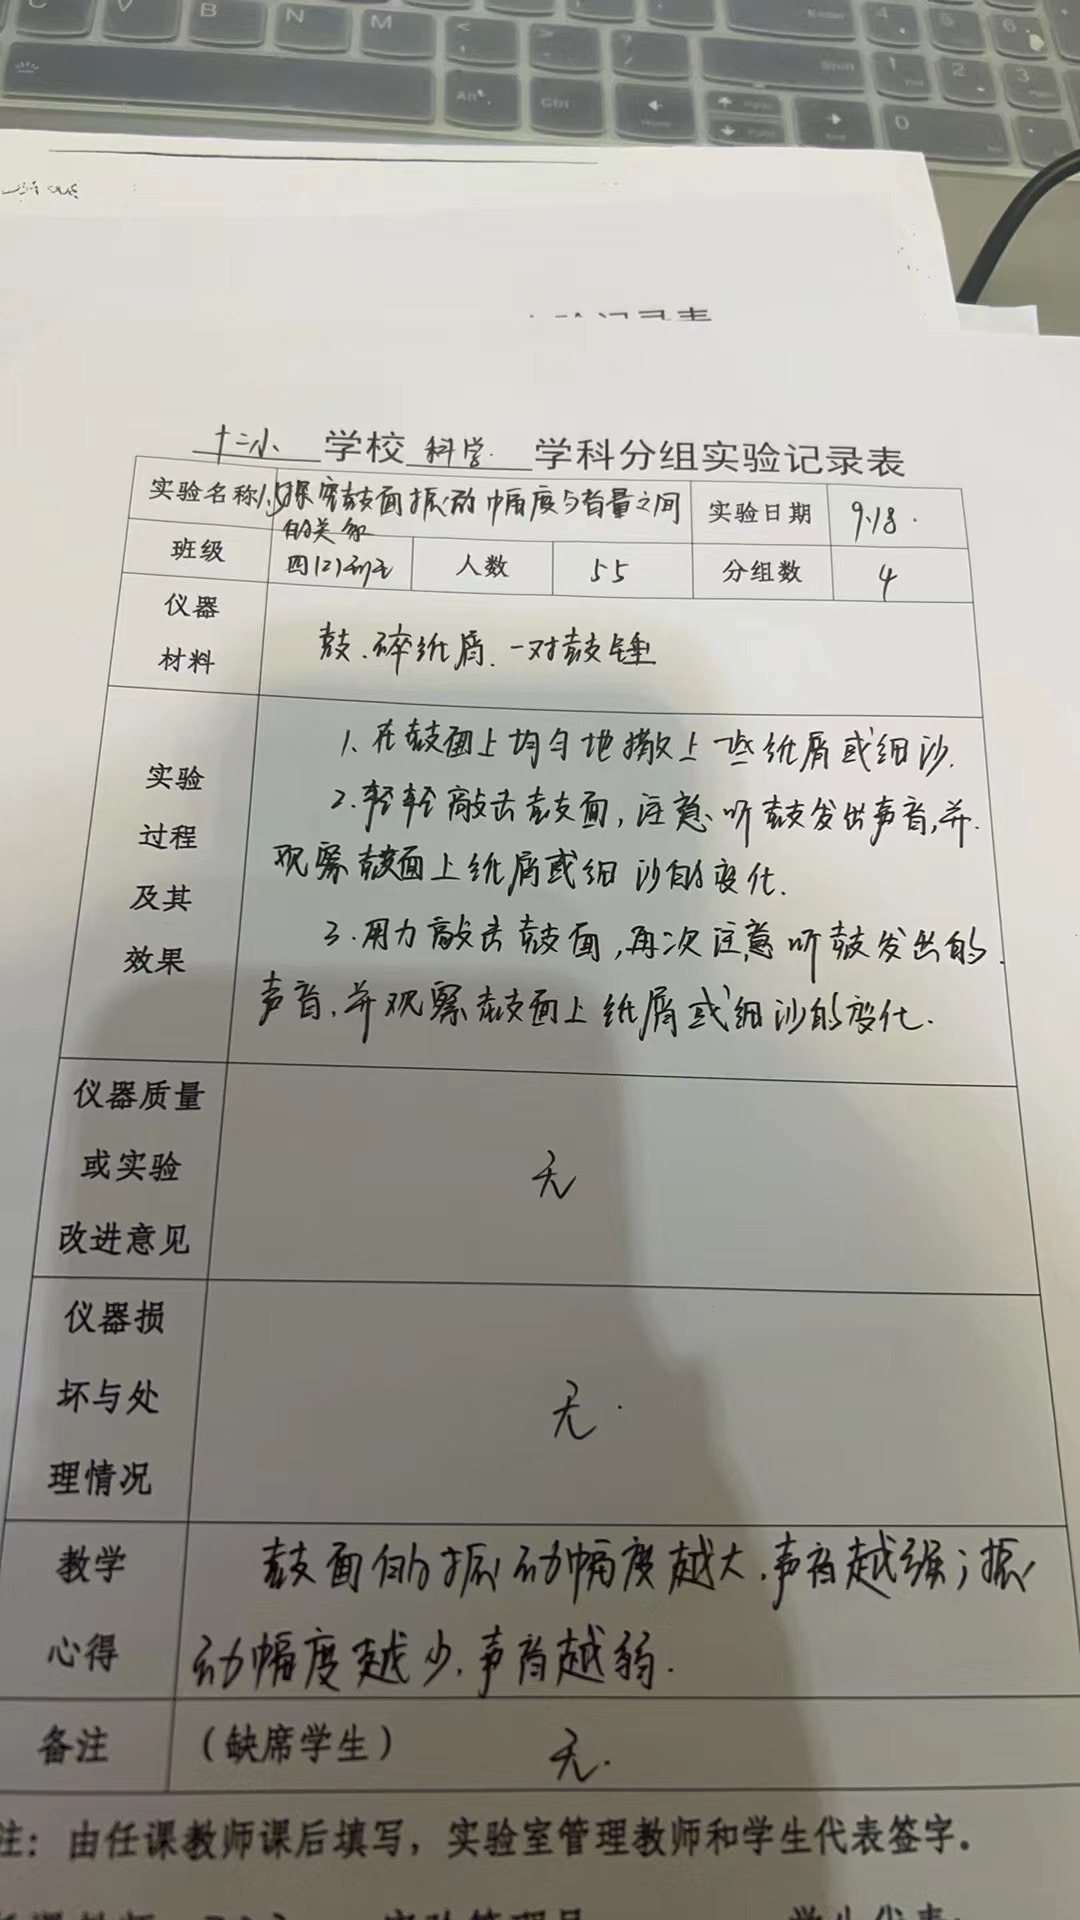 C V B N M < > ? Enter 4 5 6
Shift 1 2 3
Alt Ctrl 0
十二小 学校 科学 学科分组实验记录表
实验名称 探究鼓面振动幅度与音量之间的关系 实验日期 9.18.
班级 四(2) 人数 55 分组数 4
仪器
材料
鼓、碎纸屑、一对鼓锤
实验
过程
及其
效果
1、在鼓面上均匀地撒上一些纸屑或细沙.
2.轻轻敲击鼓面,注意听鼓发出声音,并
观察鼓面上纸屑或细沙的变化.
3.用力敲击鼓面,再次注意听鼓发出的
声音,并观察鼓面上纸屑或细沙的变化.
仪器质量
或实验
改进意见
无
仪器损
坏与处
理情况
无.
教学
心得
鼓面的振动幅度越大,声音越强;振
动幅度越少,声音越弱.
备注 (缺席学生) 无.
注：由任课教师课后填写，实验室管理教师和学生代表签字。